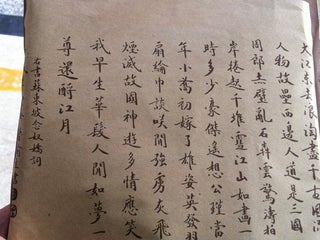 大江东去浪淘盡千古風
人物故壘西邊人道是三國
周郎赤壁亂石崩雲驚濤拍
岸捲起千堆雪江山如畫一
時多少豪傑遙想公瑾當
年小喬初嫁了雄姿英發羽
扇綸巾談笑間強虜灰飛
煙滅故國神遊多情應笑
我早生華髮人間如夢一
尊還酹江月
右書蘇東坡念奴嬌詞